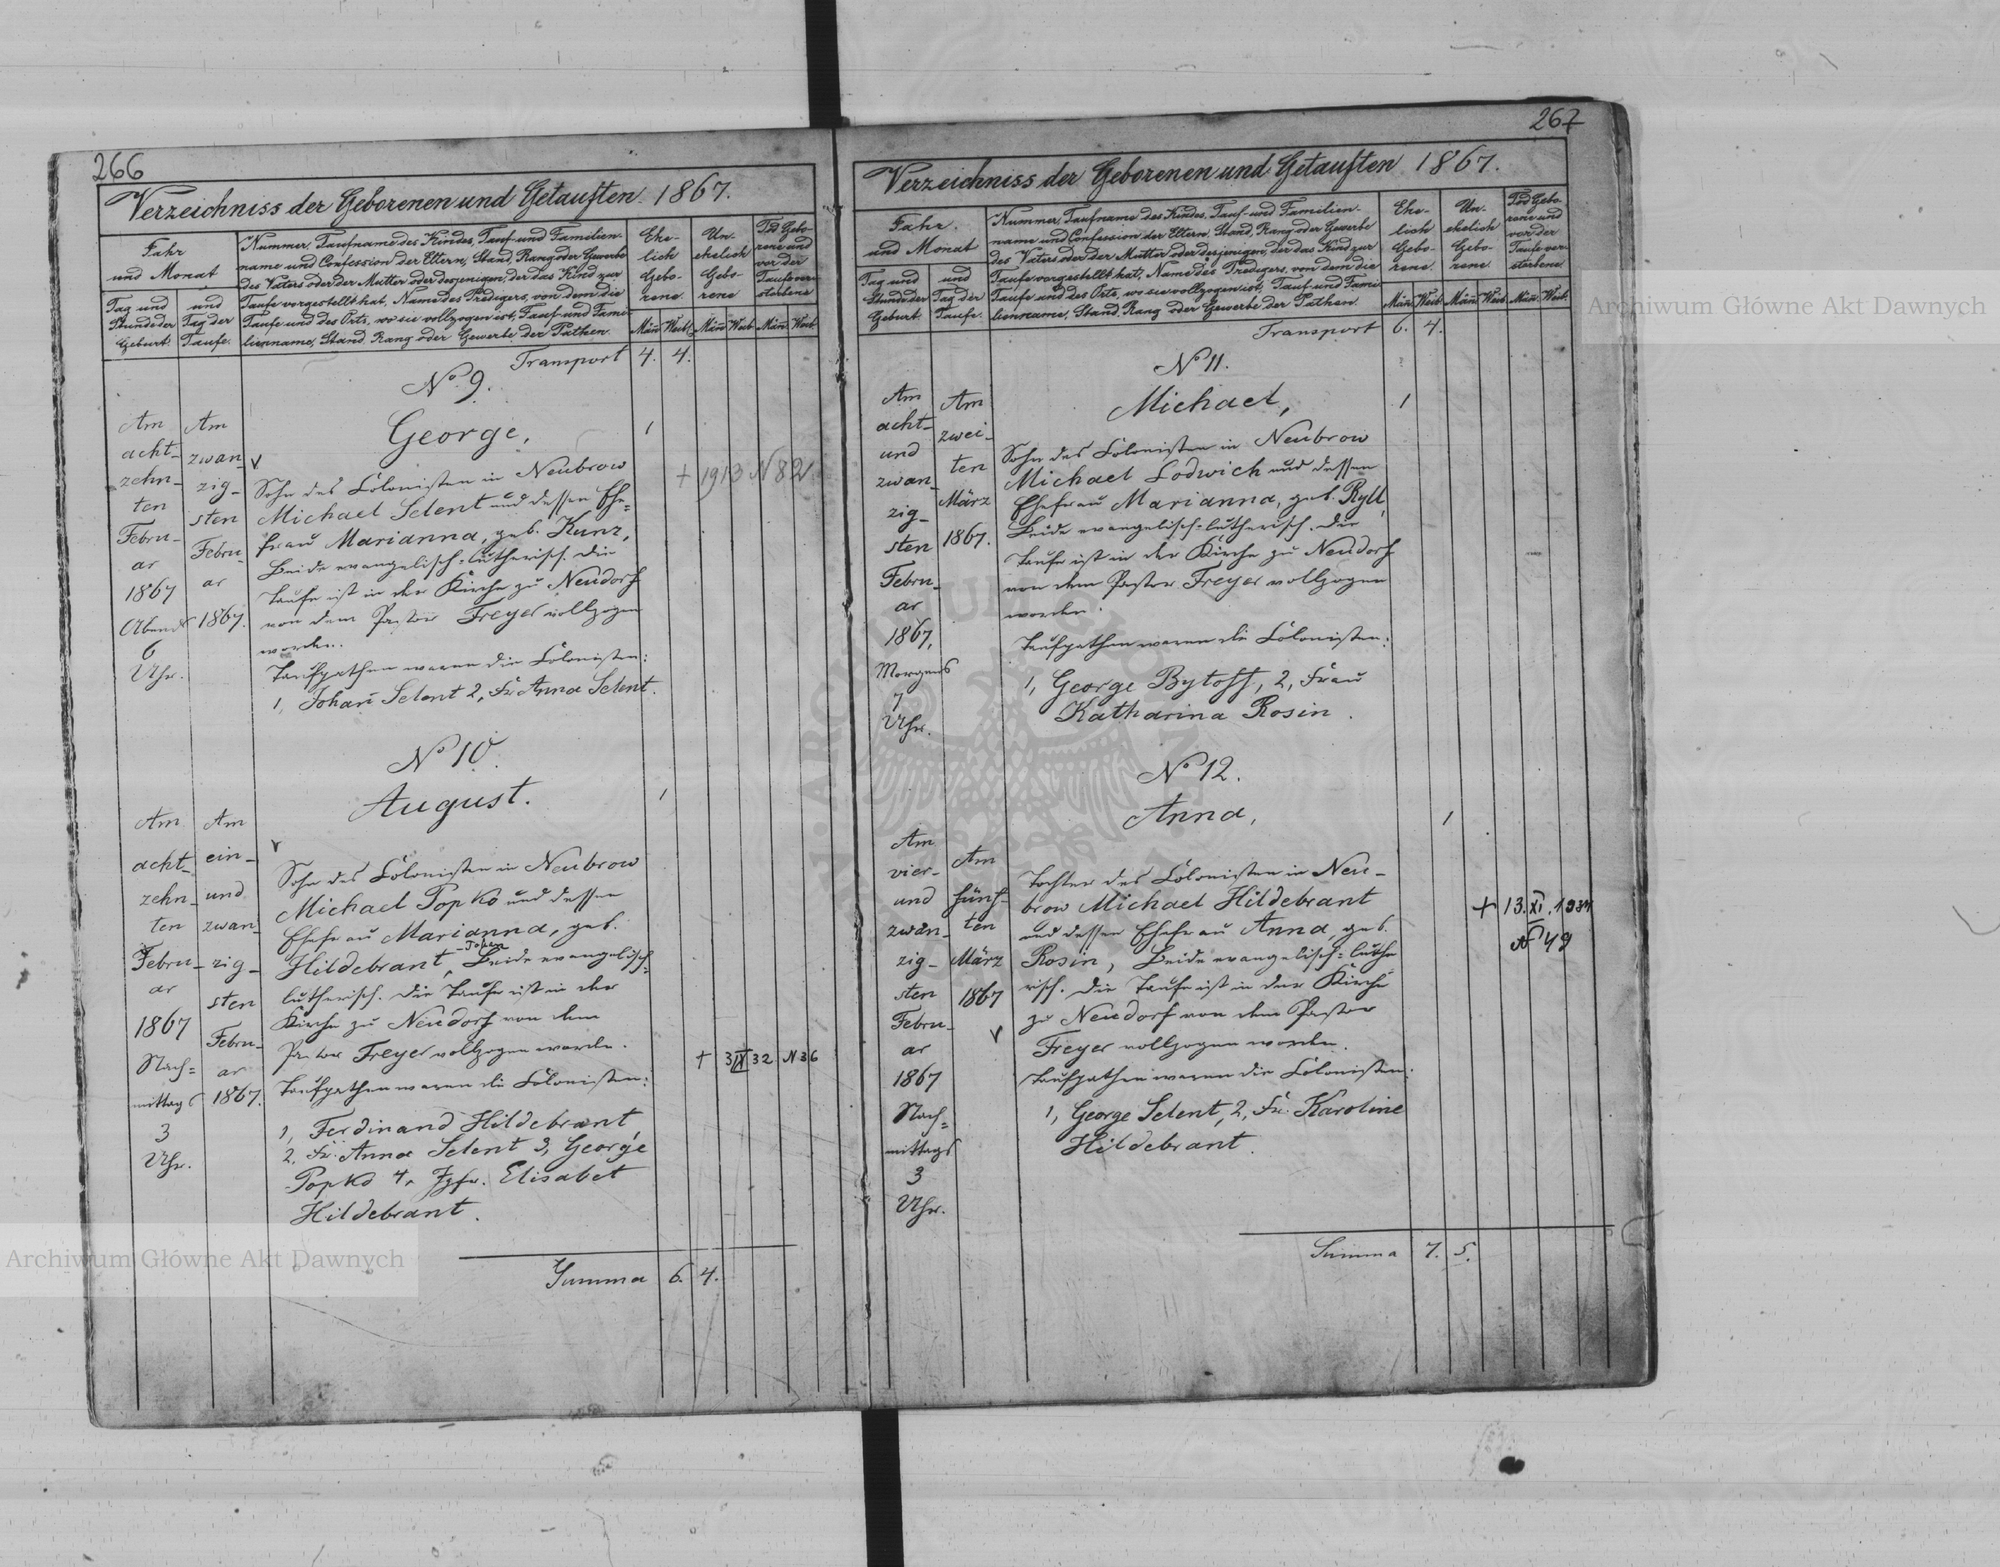 266
Verzeichniss der Geborenen und Getauften 1867.
Jahr
und Monat
Tag und
Stunde der
Geburt.
und
Tag der
Taufe.
Nummer, Taufname des Kindes, Tauf- und Familien-
name und Confession der Eltern, Stand, Rang oder Gewerbe
des Vaters oder der Mutter oder desjenigen, der das Kind zur
Taufe vorgestellt hat, Name des Predigers, von dem die
Taufe und des Orts, wo sie vollzogen ist, Tauf- und Fami-
lienname, Stand, Rang oder Gewerbe der Pathen.
Ehe-
lich
Gebo-
rene.
Un-
ehelich
Gebo-
rene
Tod Gebo-
rene und
vor der
Taufe ver-
storbene
Män. Weib. Män. Weib. Män. Weib.
Transport 4. 4.
No 9.
Am
acht-
zehn-
ten
Febru-
ar
1867
Abends
6
Uhr.
Am
zwan-
zig-
sten
Febru-
ar
1867.
George,
1
Sohn des Colonisten in Neubrow
Michael Selent und dessen Ehe-
frau Marianna, geb. Kunz,
Beide evangelisch-lutherisch. Die
Taufe ist in der Kirche zu Neudorf
von dem Pastor Freyer vollzogen
worden.
Taufpathen waren die Colonisten:
1, Johañ Selent 2, Fr. Anna Selent.
+ 1913 N 82
No 10.
Am
acht-
zehn-
ten
Febru-
ar
1867
Nach-
mittags
3
Uhr.
Am
ein-
und
zwan-
zig-
sten
Febru-
ar
1867.
August.
1
Sohn des Colonisten in Neubrow
Michael Popko und dessen
Ehefrau Marianna, geb.
Hildebrant, Beide evangelisch-
lutherisch. Die Taufe ist in der
Kirche zu Neudorf von dem
Pastor Freyer vollzogen worden.
Taufpathen waren die Colonisten:
1, Ferdinand Hildebrant,
2, Fr. Anna Selent 3, George
Popko 4, Jgfr. Elisabet
Hildebrant.
+ 3 IX 32 N 36
Summa 6. 4.
267
Verzeichniss der Geborenen und Getauften 1867.
Jahr
und Monat
Tag und
Stunde der
Geburt.
und
Tag der
Taufe.
Nummer, Taufname des Kindes, Tauf- und Familien-
name und Confession der Eltern, Stand, Rang oder Gewerbe
des Vaters oder der Mutter oder desjenigen, der das Kind zur
Taufe vorgestellt hat, Name des Predigers, von dem die
Taufe und des Orts, wo sie vollzogen ist, Tauf- und Fami-
lienname, Stand, Rang oder Gewerbe der Pathen.
Ehe-
lich
Gebo-
rene.
Un-
ehelich
Gebo-
rene.
Tod Gebo-
rene und
vor der
Taufe ver-
storbene
Män. Weib. Män. Weib. Män. Weib.
Transport 6. 4.
No 11.
Am
acht-
und
zwan-
zig-
sten
Febru-
ar
1867,
Morgens
7
Uhr.
Am
zwei-
ten
März
1867.
Michael,
1
Sohn des Colonisten in Neubrow
Michael Lodwich und dessen
Ehefrau Marianna, geb. Ryll,
Beide evangelisch-lutherisch. Die
Taufe ist in der Kirche zu Neudorf
von dem Pastor Freyer vollzogen
worden.
Taufpathen waren die Colonisten:
1, George Bytoff, 2, Frau
Katharina Rosin.
No 12.
Am
vier-
und
zwan-
zig-
sten
Febru-
ar
1867
Nach-
mittags
3
Uhr.
Am
fünf-
ten
März
1867
Anna,
1
Tochter des Colonisten in Neu-
brow Michael Hildebrant
und dessen Ehefrau Anna, geb.
Rosin, Beide evangelisch-luthe
risch. Die Taufe ist in der Kirche
zu Neudorf von dem Pastor
Freyer vollzogen worden.
Taufpathen waren die Colonisten:
1, George Selent, 2, Fr. Karoline
Hildebrant.
+ 13. XI.
No 49
Summa 7. 5.
Archiwum Główne Akt Dawnych
Archiwum Główne Akt Dawnych